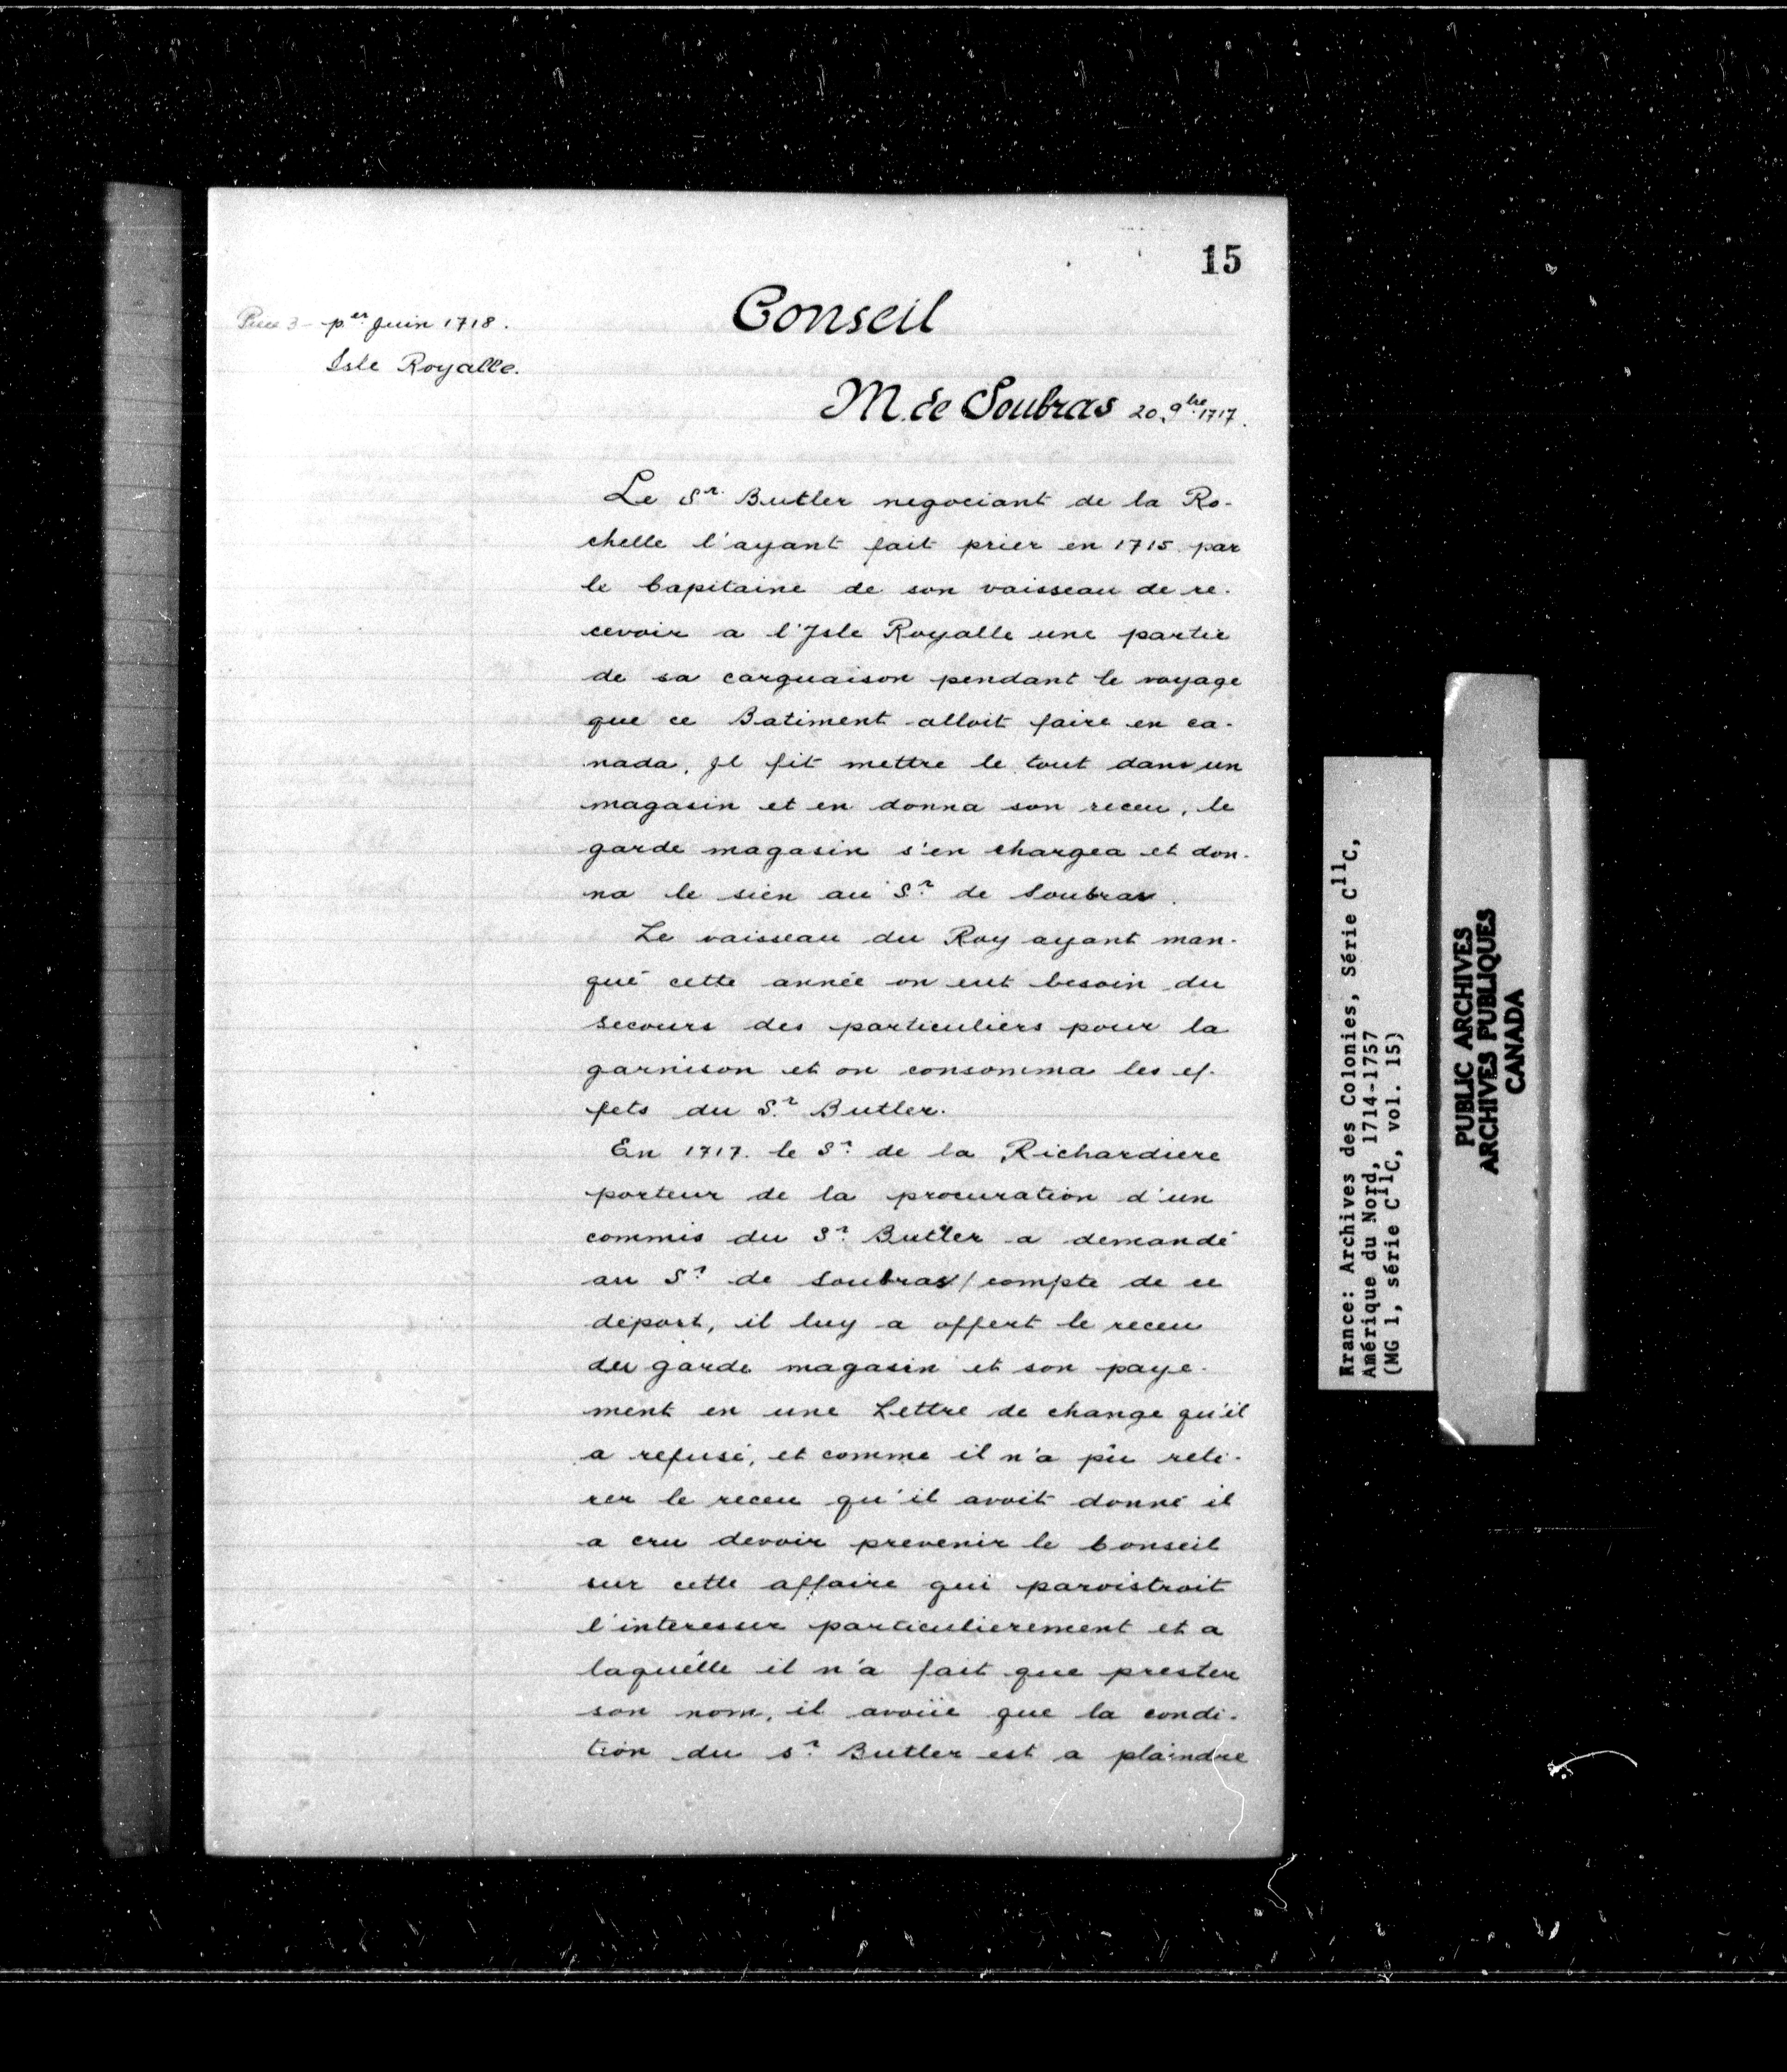 15
Piece 3 - p.er Juin 1718.
Isle Royalle.
Conseil
M. de Soubras 20. 9bre 1717.
Le Sr. Butler negociant de la Ro-
chelle l'ayant fait prier en 1715 par
le Capitaine de son vaisseau de re-
cevoir a l'Isle Royalle une partie
de sa carguaison pendant le voyage
que ce Batiment alloit faire en ca-
nada, Il fit mettre le tout dans un
magasin et en donna son receu, le
garde magasin s'en chargea et don-
na le sien au Sr. de Soubras.
Le vaisseau du Roy ayant man-
qué cette année on eut besoin du
secours des particuliers pour la
garnison et on consomma les ef-
fets du Sr. Butler.
En 1717. le Sr. de la Richardiere
porteur de la procuration d'un
commis du Sr. Butler a demandé
au Sr. de Soubras / compte de ce
depost, il luy a offert le receu
du garde magasin et son paye-
ment en une Lettre de change qu'il
a refusé, et comme il n'a pû reti-
rer le receu qu'il avoit donné il
a cru devoir prevenir le Conseil
sur cette affaire qui paroistroit
l'interesser particulierement et a
laquelle il n'a fait que prester
son nom, il avoüe que la condi-
tion du Sr. Butler est a plaindre
Krance: Archives des Colonies, Série C11C,
Amérique du Nord, 1714-1757
(MG 1, série C11C, vol. 15)
PUBLIC ARCHIVES
ARCHIVES PUBLIQUES
CANADA